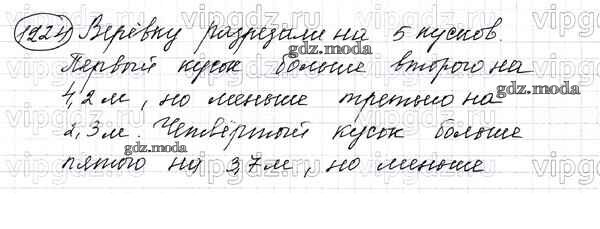 1224) Верёвку разрезали на 5 кусков.
Первый кусок больше второго на
4,2 м, но меньше третьего на
2,3 м. Четвёртый кусок больше
пятого на 3,7 м, но меньше
gdz.moda
gdz.moda
gdz.moda
gdz.moda
vipgdz
vipgdz
vipgdz
vipgdz